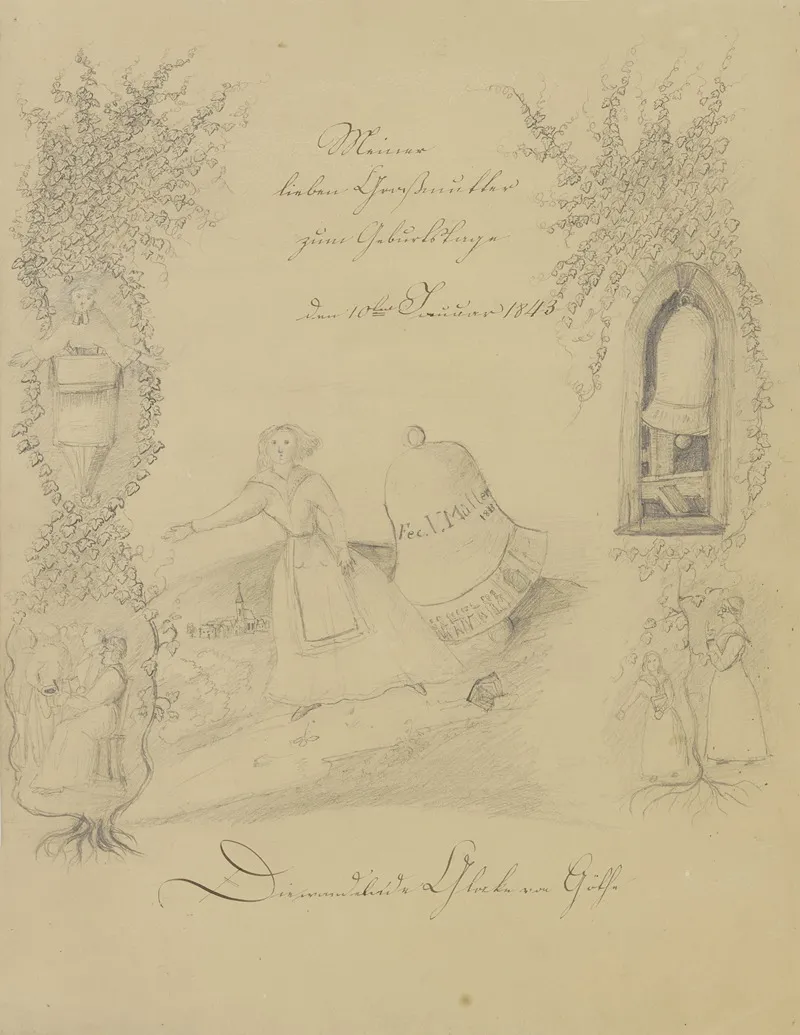 Meiner
lieben Großmutter
zum Geburtstage
den 10ten Januar 1843
Fec. V. Müller
Die wandelnde Glocke von Göthe